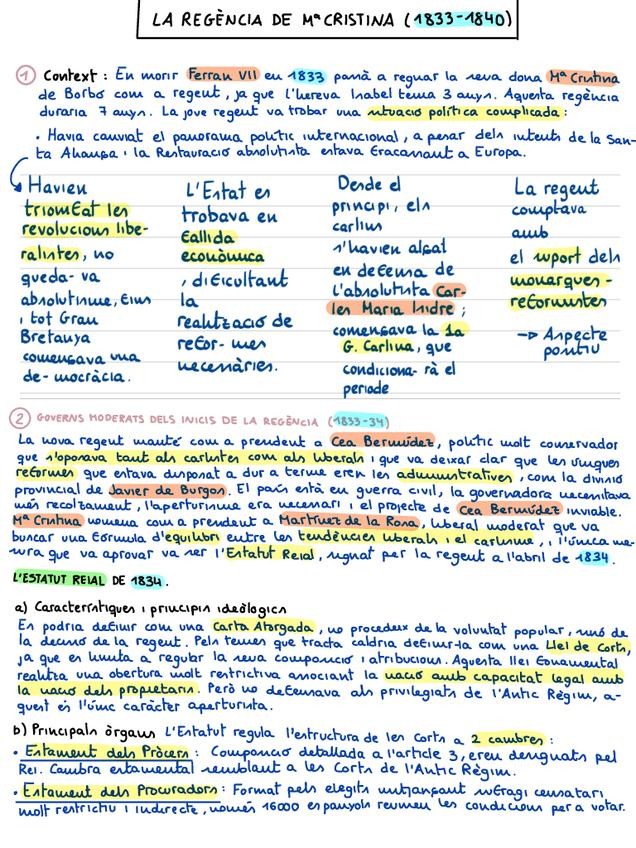 LA REGÈNCIA DE Mª CRISTINA (1833-1840)
① Context : En morir Ferran VII en 1833 passà a regnar la seva dona Mª Cristina
de Borbó com a regent, ja que l'hereva Isabel tenia 3 anys. Aquesta regència
duraria 7 anys. La jove regent va trobar una situació política complicada :
• Havia canviat el panorama polític internacional, a pesar dels intents de la San-
ta Aliança i la Restauració absolutista estava fracassant a Europa.
Havien
triomfat les
revolucions libe-
ralistes, no
queda- va
absolutisme, fins
i tot Gran
Bretanya
començava una
de- mocràcia.
L'Estat es
trobava en
fallida
econòmica
, dificultant
la
realització de
refor- mes
necessàries.
Desde el
principi, els
carlins
s'havien alçat
en defensa de
l'absolutista Car-
les Maria Isidre ;
començava la 1a
G. Carlina, que
condiciona- rà el
període
La regent
comptava
amb
el suport dels
monarques-
reformistes
–> Aspecte
positiu
② GOVERNS MODERATS DELS INICIS DE LA REGÈNCIA (1833-34)
La nova regent manté com a president a Cea Bermúdez, polític molt conservador
que s'oposava tant als carlistes com als liberals i que va deixar clar que les úniques
reformes que estava disposat a dur a terme eren les administratives, com la divisió
provincial de Javier de Burgos. El país està en guerra civil, la governadora necessitava
més recolzament, l'aperturisme era necessari i el projecte de Cea Bermúdez inviable.
Mª Cristina nomena com a president a Martínez de la Rosa, liberal moderat que va
buscar una fórmula d'equilibri entre les tendències liberals i el carlisme, i l'única me-
sura que va aprovar va ser l'Estatut Reial, signat per la regent a l'abril de 1834.
L'ESTATUT REIAL DE 1834.
a) Característiques i principis ideològics
Es podria definir com una Carta Atorgada, no procedeix de la voluntat popular, sinó de
la decisió de la regent. Pels temes que tracta caldria definir-la com una Llei de Corts,
ja que es limita a regular la seva composició i atribucions. Aquesta llei fonamental
realitza una obertura molt restrictiva associant la nació amb capacitat legal amb
la nació dels propietaris. Però no defensava als privilegiats de l'Antic Règim, a-
quest és l'únic caràcter aperturista.
b) Principals òrgans L'Estatut regula l'estructura de les Corts a 2 cambres :
• Estament dels Pròcers : Composició detallada a l'article 3, eren designats pel
Rei. Cambra estamental semblant a les Corts de l'Antic Règim.
• Estament dels Procuradors : Format pels elegits mitjançant sufragi censatari
molt restrictiu i indirecte, només 16000 espanyols reunien les condicions per a votar.